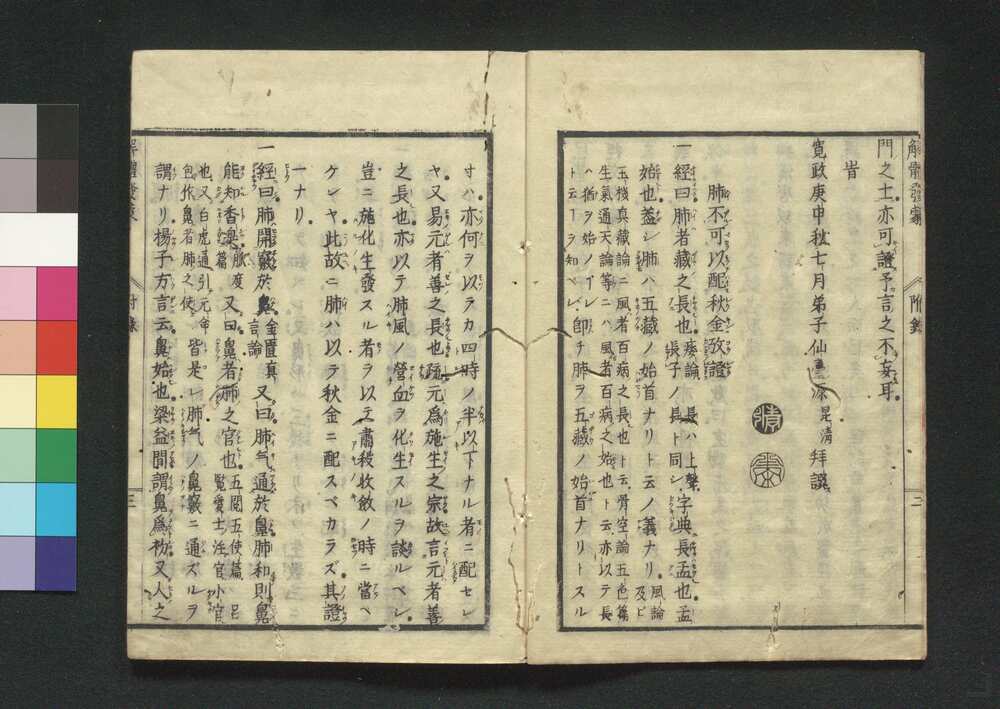 解體發蒙 附錄 二
門之士亦可讀予言之不妄耳
旹
寛政庚申秋七月弟子仙臺源昆淸拜譔
肺不可以配秋金攷證
一經曰肺者藏之長也痿論長ハ上聲字典長孟也孟
長子ノ長ト同シ
始也葢シ肺ハ五藏ノ始首ナリト云ノ義ナリ風論及ビ
玉機真藏論ニ風者百病之長也ト云骨空論五色篇
生氣通天論等ニハ風者百病之始也ト云亦以テ長
ハ猶ヲ始ノゴレ
ト云フヿヲ知ベレ卽チ肺ヲ五藏ノ始首ナリトスル
寸ハ亦何ヲ以ヲカ四時ノ半以下ナル者ニ配セレ
ヤ又易元者善之長也疏元爲施生之宗故言元者善
之長也亦以テ肺風ノ營血ヲ化生スルヲ談ルベレ
豈ニ施化生發スル者ヲ以テ肅殺收斂ノ時ニ當ヘ
ケンヤ此故ニ肺ハ以ヲ秋金ニ配スベカラズ其證
一ナリ
一經曰肺開竅於鼻金匱真言論又曰肺气通於鼻肺和則鼻
能知香臭脉度篇又曰鼻者肺之官也五閱五使篇
也又白虎通引元命
包作鼻者肺之使
皆是レ肺气ノ鼻竅ニ通ズルヲ
謂ナリ楊子方言云鼻始也梁益間謂鼻爲初又人之
解體發蒙 附錄 三